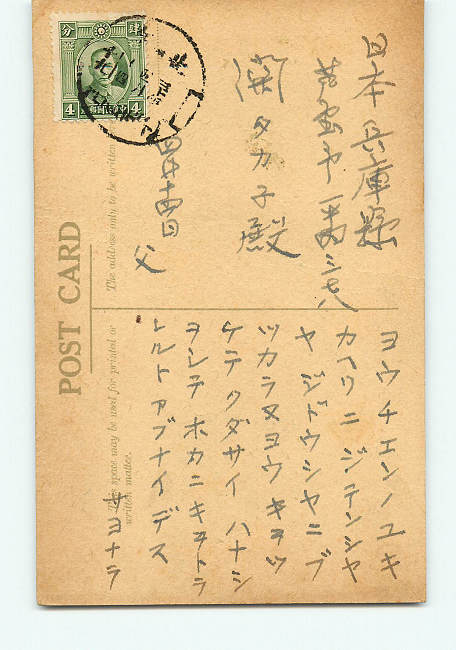 日本兵庫縣
三七八
タカ子殿
十四日
父
ヨウチエンノユキ
カヘリニジテンシヤ
ヤジドウシヤニブ
ツカラヌヨウキヲツ
ケテクダサイハナシ
ヲシテホカニキヲトラ
レルトアブナイデス
サヨナラ
POST CARD
The address only to be written
This space may be used for printed or
written matter.
分 肆
4 4